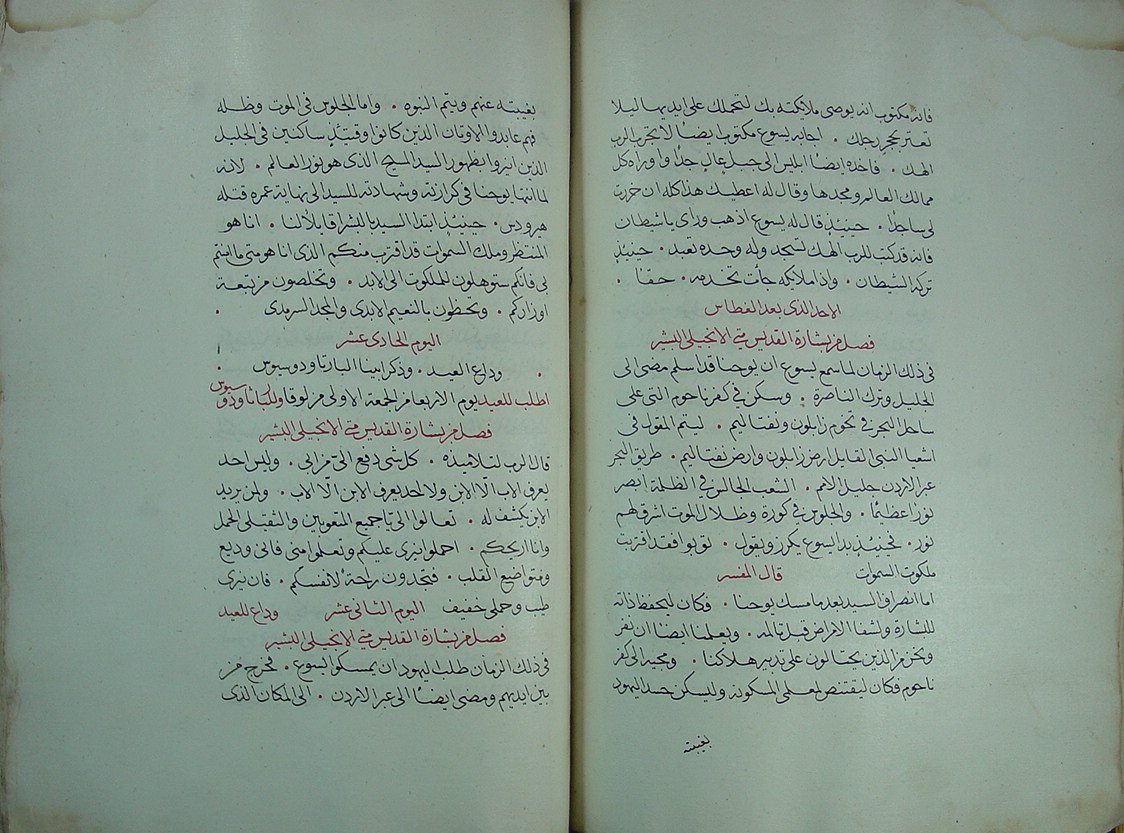 فانه مكتوب انه يوصى ملايكته بك لتحملك على ايديها ليلا
تعتر بحجر رجلك ۰ اجابه يسوع مكتوب ايضا لا تجرب الرب
الهك ۰ فاخذه ايضا ابليس الى جبل عال جدا واوراه كل
ممالك العالم ومجدها وقال له اعطيك هذا كله ان خررت
لى ساجدا ۰ حينيذ قال له يسوع اذهب وراى يا شيطان
فانه قد كتب للرب الهك تسجد وله وحده تعبد ۰ حينيذ
تركه الشيطان ۰ واذا ملايكه جأت تخدمه ۰ حقا ۰
الاحد الذى بعد الغطاس
فصل من بشارة القديس متى الانجيلى البشير
فى ذلك الزمان لما سمع يسوع ان يوحنا قد اسلم مضى الى
الجليل وترك الناصرة ۰ وسكن فى كفرناحوم التى على
ساحل البحر فى تخوم زابلون ونفتاليم ۰ ليتم المقول فى
اشعيا النبى القايل ارض زابلون وارض نفتاليم ۰ طريق البحر
عبر الاردن جليل الامم ۰ الشعب الجالس فى الظلمة ابصر
نورا عظيما ۰ والجلوس فى كورة وظلال الموت اشرق لهم
نور ۰ فحينيذ بدا يسوع يكرز ويقول ۰ توبوا فقد اقتربت
ملكوت السموات قال المفسر
اما انصراف السيد بعد ما مسك يوحنا ۰ فكان ليحفظ ذاته
للبشارة ولشفا الامراض قبل تالمه ۰ ويعلمنا ايضا ان نفر
ونحن من الذين يحتالون على تدبير هلاكنا ۰ ومجيه الى كفر
ناحوم فكان ليقتنص لمعلمى المسكونة وليسكن حسد اليهود
بغيبته
بغيبته عنهم ويتم النبوه ۰ واما الجلوس فى الموت وظله
فهم عابدوا الاوتان الذين كانوا وقتيذ ساكنين فى الجليل
الذين انيروا بظهور السيد المسيح الذى هو نور العالم ۰ لانه
لما انتها يوحنا فى كرازته وشهادته للسيد الى نهاية عمره قتله
هيرودس ۰ حينيذ ابتدا السيد بالبشر قايلا لنا ۰ انا هو
المنتظر وملك السموات قد اقترب منكم الذى انا هو متى ما امنتم
لى فانكم ستوهلون للملكوت الى الابد ۰ وتخلصون من تبعة
اوزاركم ۰ وتحظون بالنعيم الابدى والمجد السرمدى ۰
اليوم الحادى عشر
۰ وداع العيد ۰ وذكر ابينا البار تاودوسيوس ۰
اطلب للعيد يوم الاربعا من الجمعة الاولى من لوقا وللبار تاودوسيوس
فصل من بشارة القديس متى الانجيلى البشير
قال الرب لتلاميذه ۰ كل شى دفع الىّ من ابى ۰ وليس احد
يعرف الاب الّا الابن ولا احد يعرف الابن الّا الاب ۰ ولمن يريد
الابن يكشف له ۰ تعالوا الى يا جميع المتعوبين والثقيلى الحمل
وانا اريحكم ۰ احملوا نيرى عليكم وتعلموا منى فانى وديع
ومتواضع القلب ۰ فتجدون راحة لانفسكم ۰ فان نيرى
طيب وحملى خفيف اليوم الثانى عشر وداع للعيد
فصل من بشارة القديس متى الانجيلى البشير
فى ذلك الزمان طلب اليهود ان يمسكوا يسوع ۰ فخرج من
بين ايديهم ومضى ايضا الى عبر الاردن ۰ الى المكان الذى